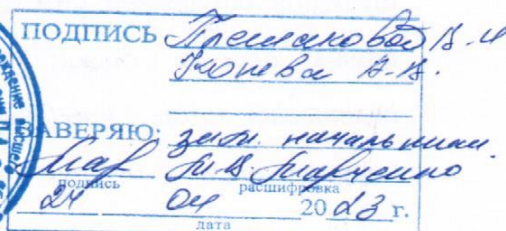 ПОДПИСЬ Плешаковой В.И
Конева А.В.
ЗАВЕРЯЮ: зам. начальника
подпись расшифровка
24 04 2023 г.
дата